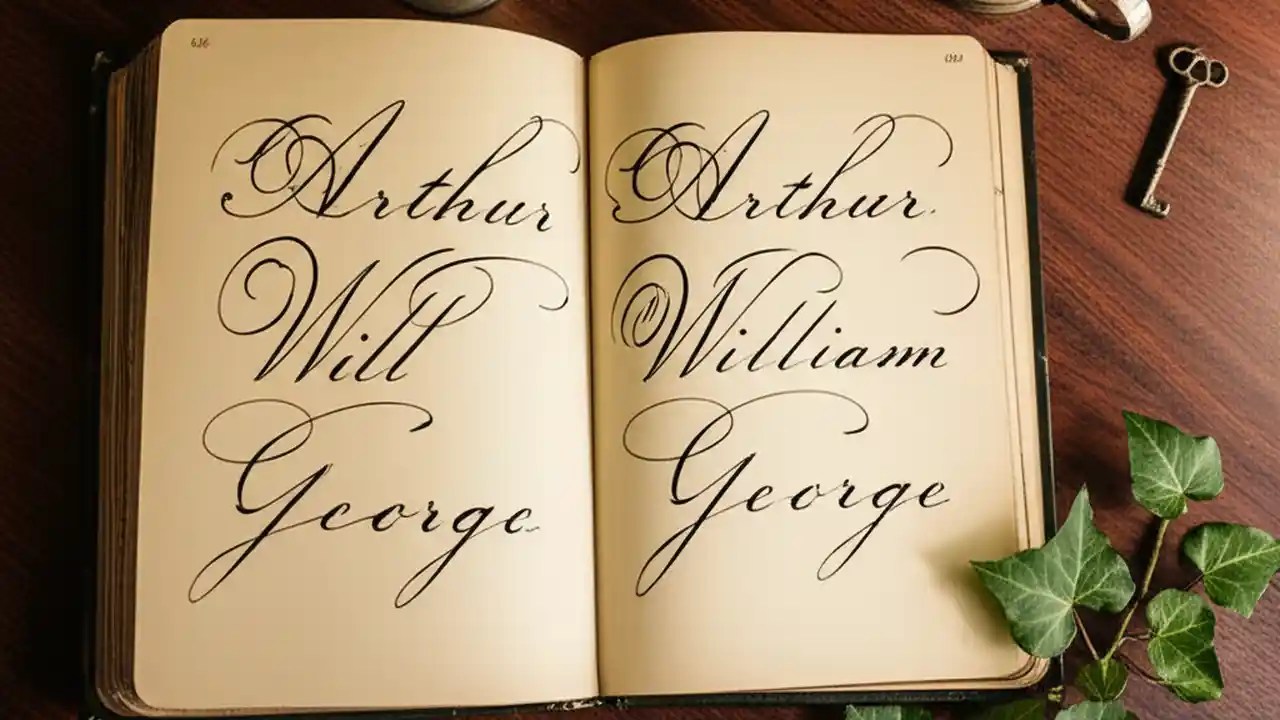 Arthur
Will
George
Arthur.
William
George